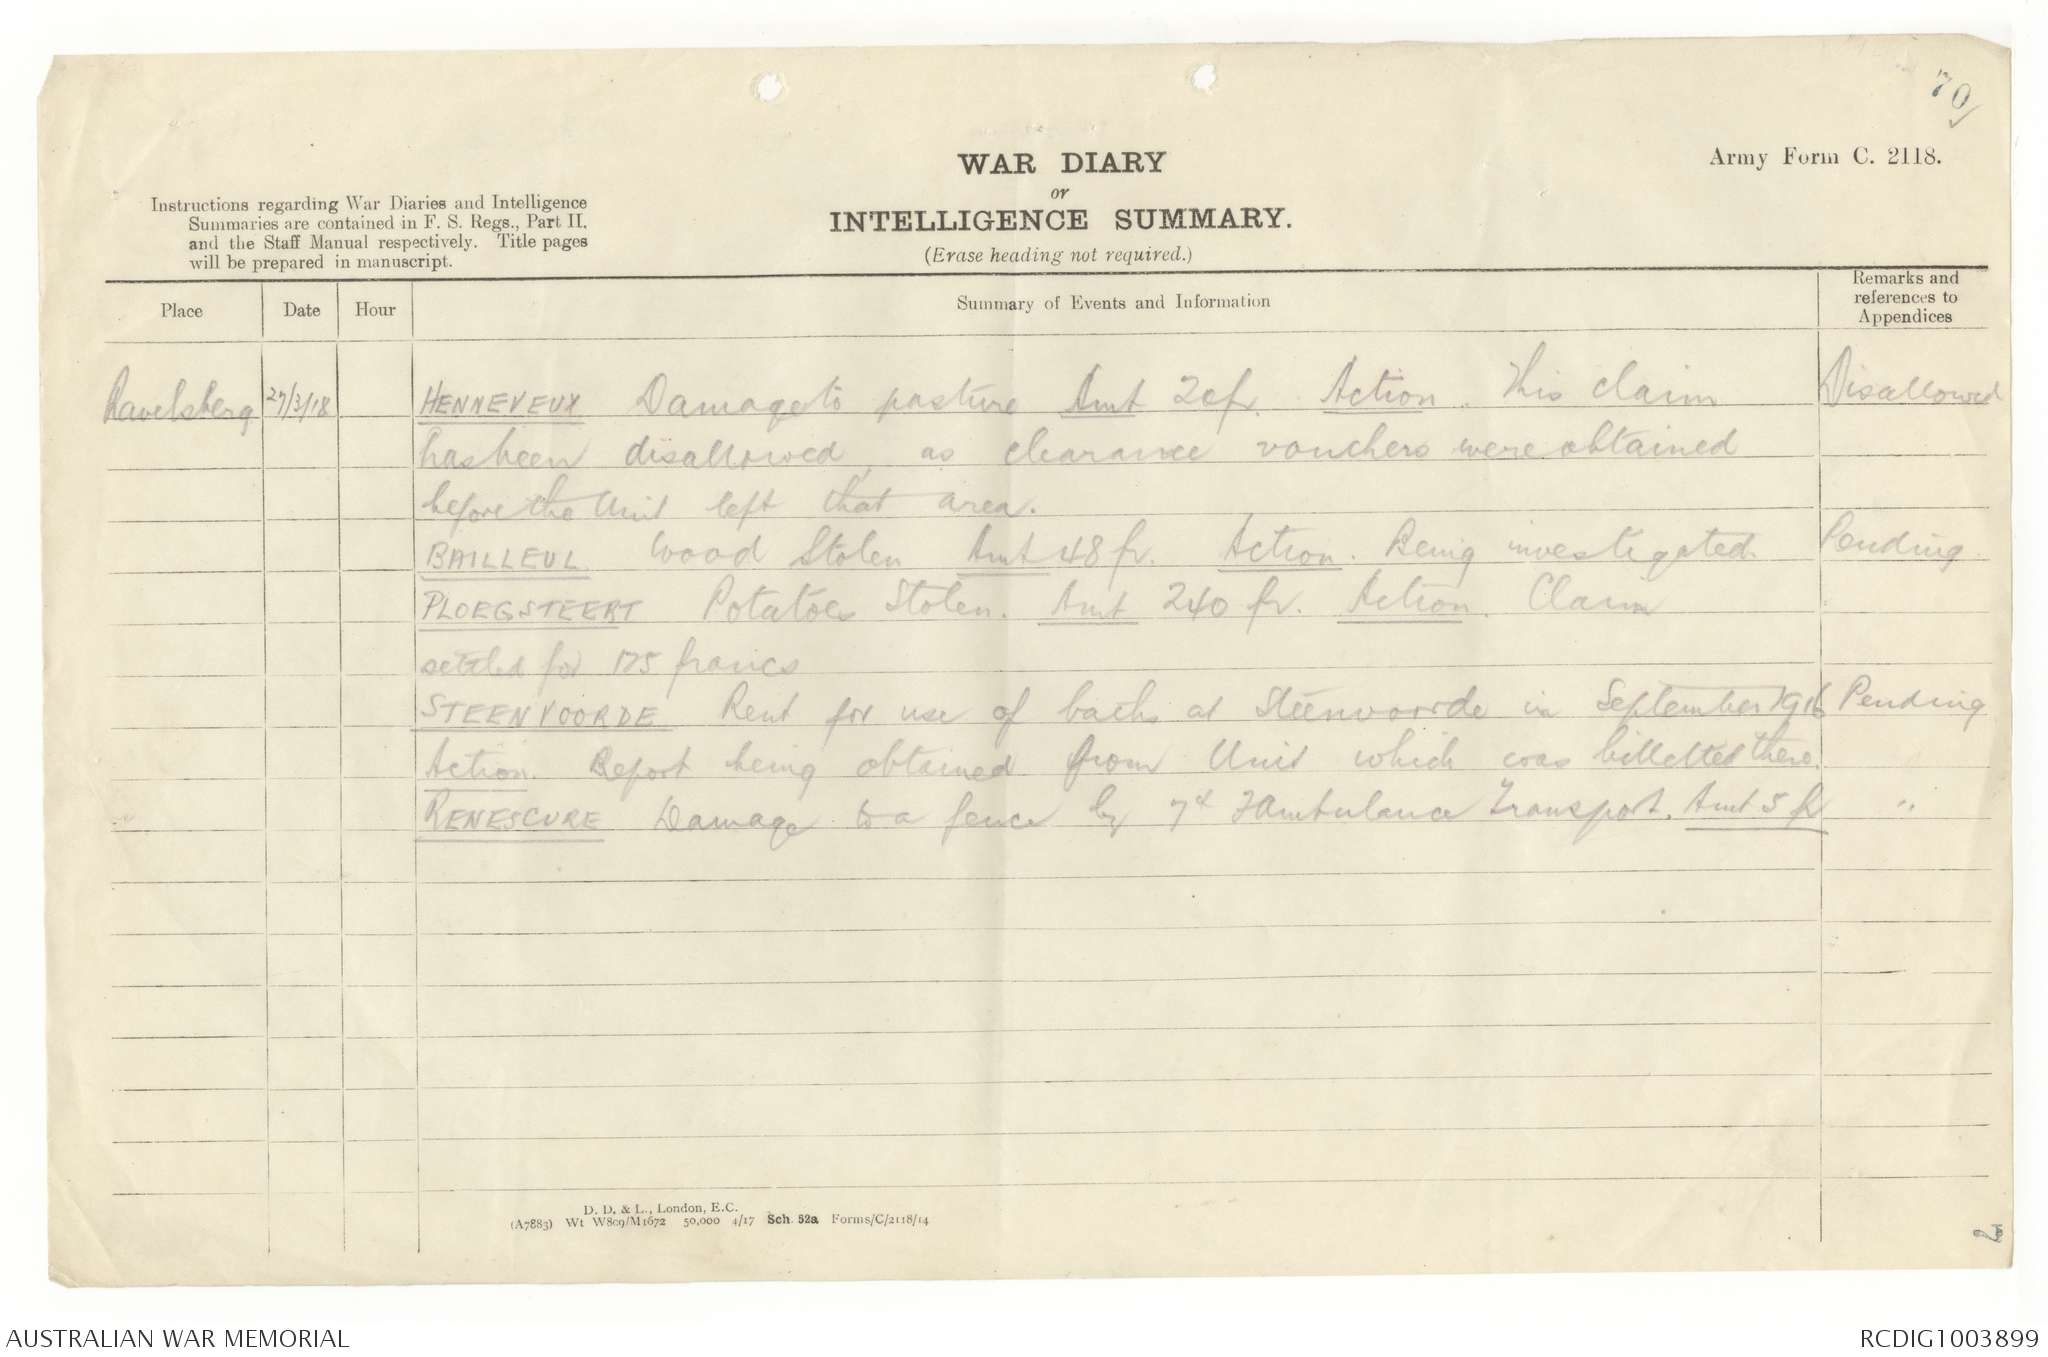 70/
Army Form C. 2118.
WAR DIARY
or
INTELLIGENCE SUMMARY.
(Erase heading not required.)
Instructions regarding War Diaries and Intelligence
Summaries are contained in F. S. Regs., Part II,
and the Staff Manual respectively. Title pages
will be prepared in manuscript.
Place Date Hour Summary of Events and Information Remarks and references to Appendices
Ravelsberg 27/3/18 HENNEVEUX Damage to pasture Amt 20fr. Action. This claim Disallowed
has been disallowed, as clearance vouchers were obtained
before the Unit left that area.
BAILLEUL Wood Stolen Amt 48 fr. Action. Being investigated. Pending
PLOEGSTEERT Potatoes Stolen. Amt 240 fr. Action. Claim
settled for 175 francs
STEENVOORDE Rent for use of baths at Steenvoorde in September 1916 Pending
Action. Report being obtained from Unit which was billetted there.
RENESCURE Damage to a fence by 7th F Ambulance Transport. Amt 5 fr "
D. D. & L., London, E.C.
(A7883) Wt W809/M1672 50,000 4/17 Sch. 52a Forms/C/2118/14
AUSTRALIAN WAR MEMORIAL
RCDIG1003899